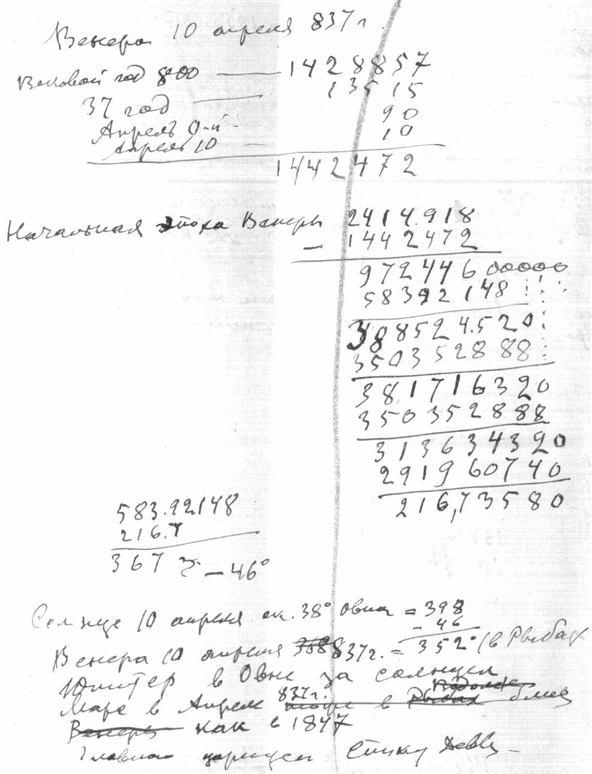 Венера 10 апреля 837 г.
Вековой год 800 — 1428857
37 год — 13515
Апрель 0-й — 90
Апрель 10 — 10
1442472
Начальная эпоха Венеры 2414.918
– 1442472
97244600000
58392148
38852 4.520
350352888
381716320
350352888
313634320
291960740
216,73580
583.92148
216.7
367 – 46°
Солнце 10 апреля 38° Овна = 398
– 46
Венера 10 апреля 837 г. = 352° (в Рыбах
Юпитер в Овне за солнцем
Марс в Апреле 837 г. в
Венера как в 1847